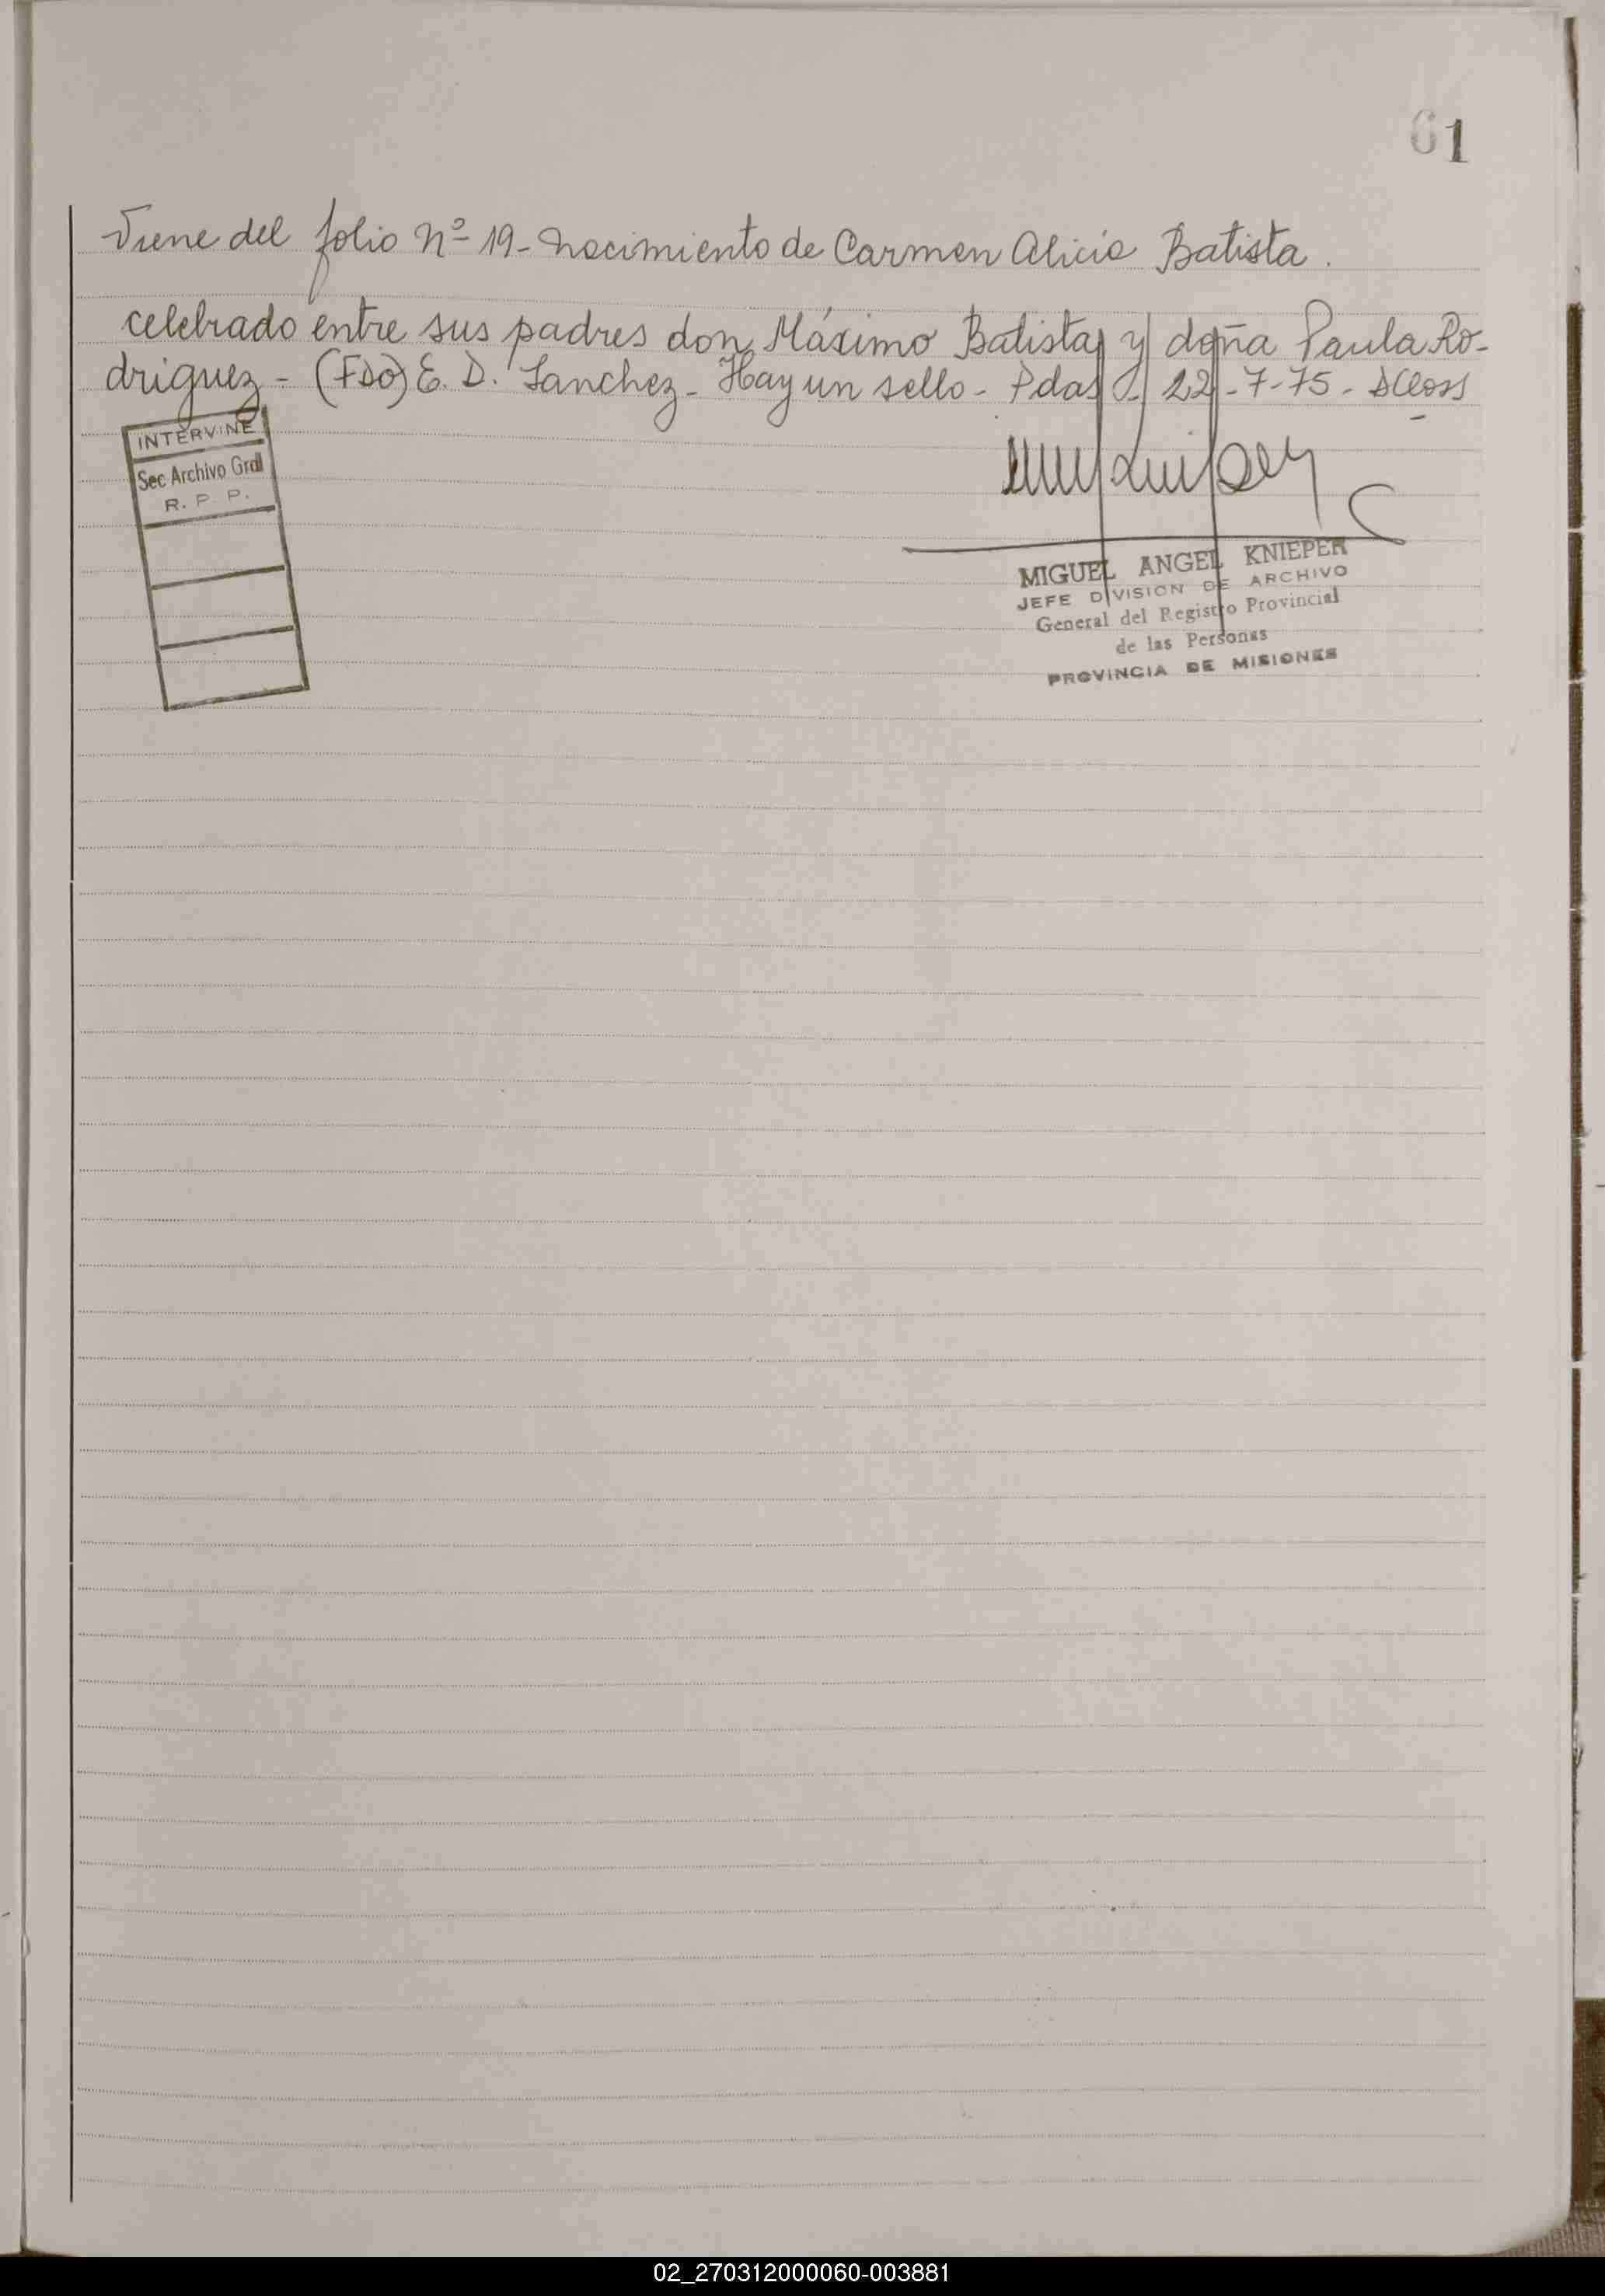 61
Viene del folio Nº 19 - Nacimiento de Carmen Alicia Batista.
celebrado entre sus padres don Máximo Batista y doña Paula Ro-
driguez - (FDO) E. D. Sanchez - Hay un sello - Pdas - 22-7-75 - DCloss
INTERVINE
Sec Archivo Gral
R. P. P.
MIGUEL ANGEL KNIEPER
JEFE DIVISION DE ARCHIVO
General del Registro Provincial
de las Personas
PROVINCIA DE MISIONES
02_270312000060-003881